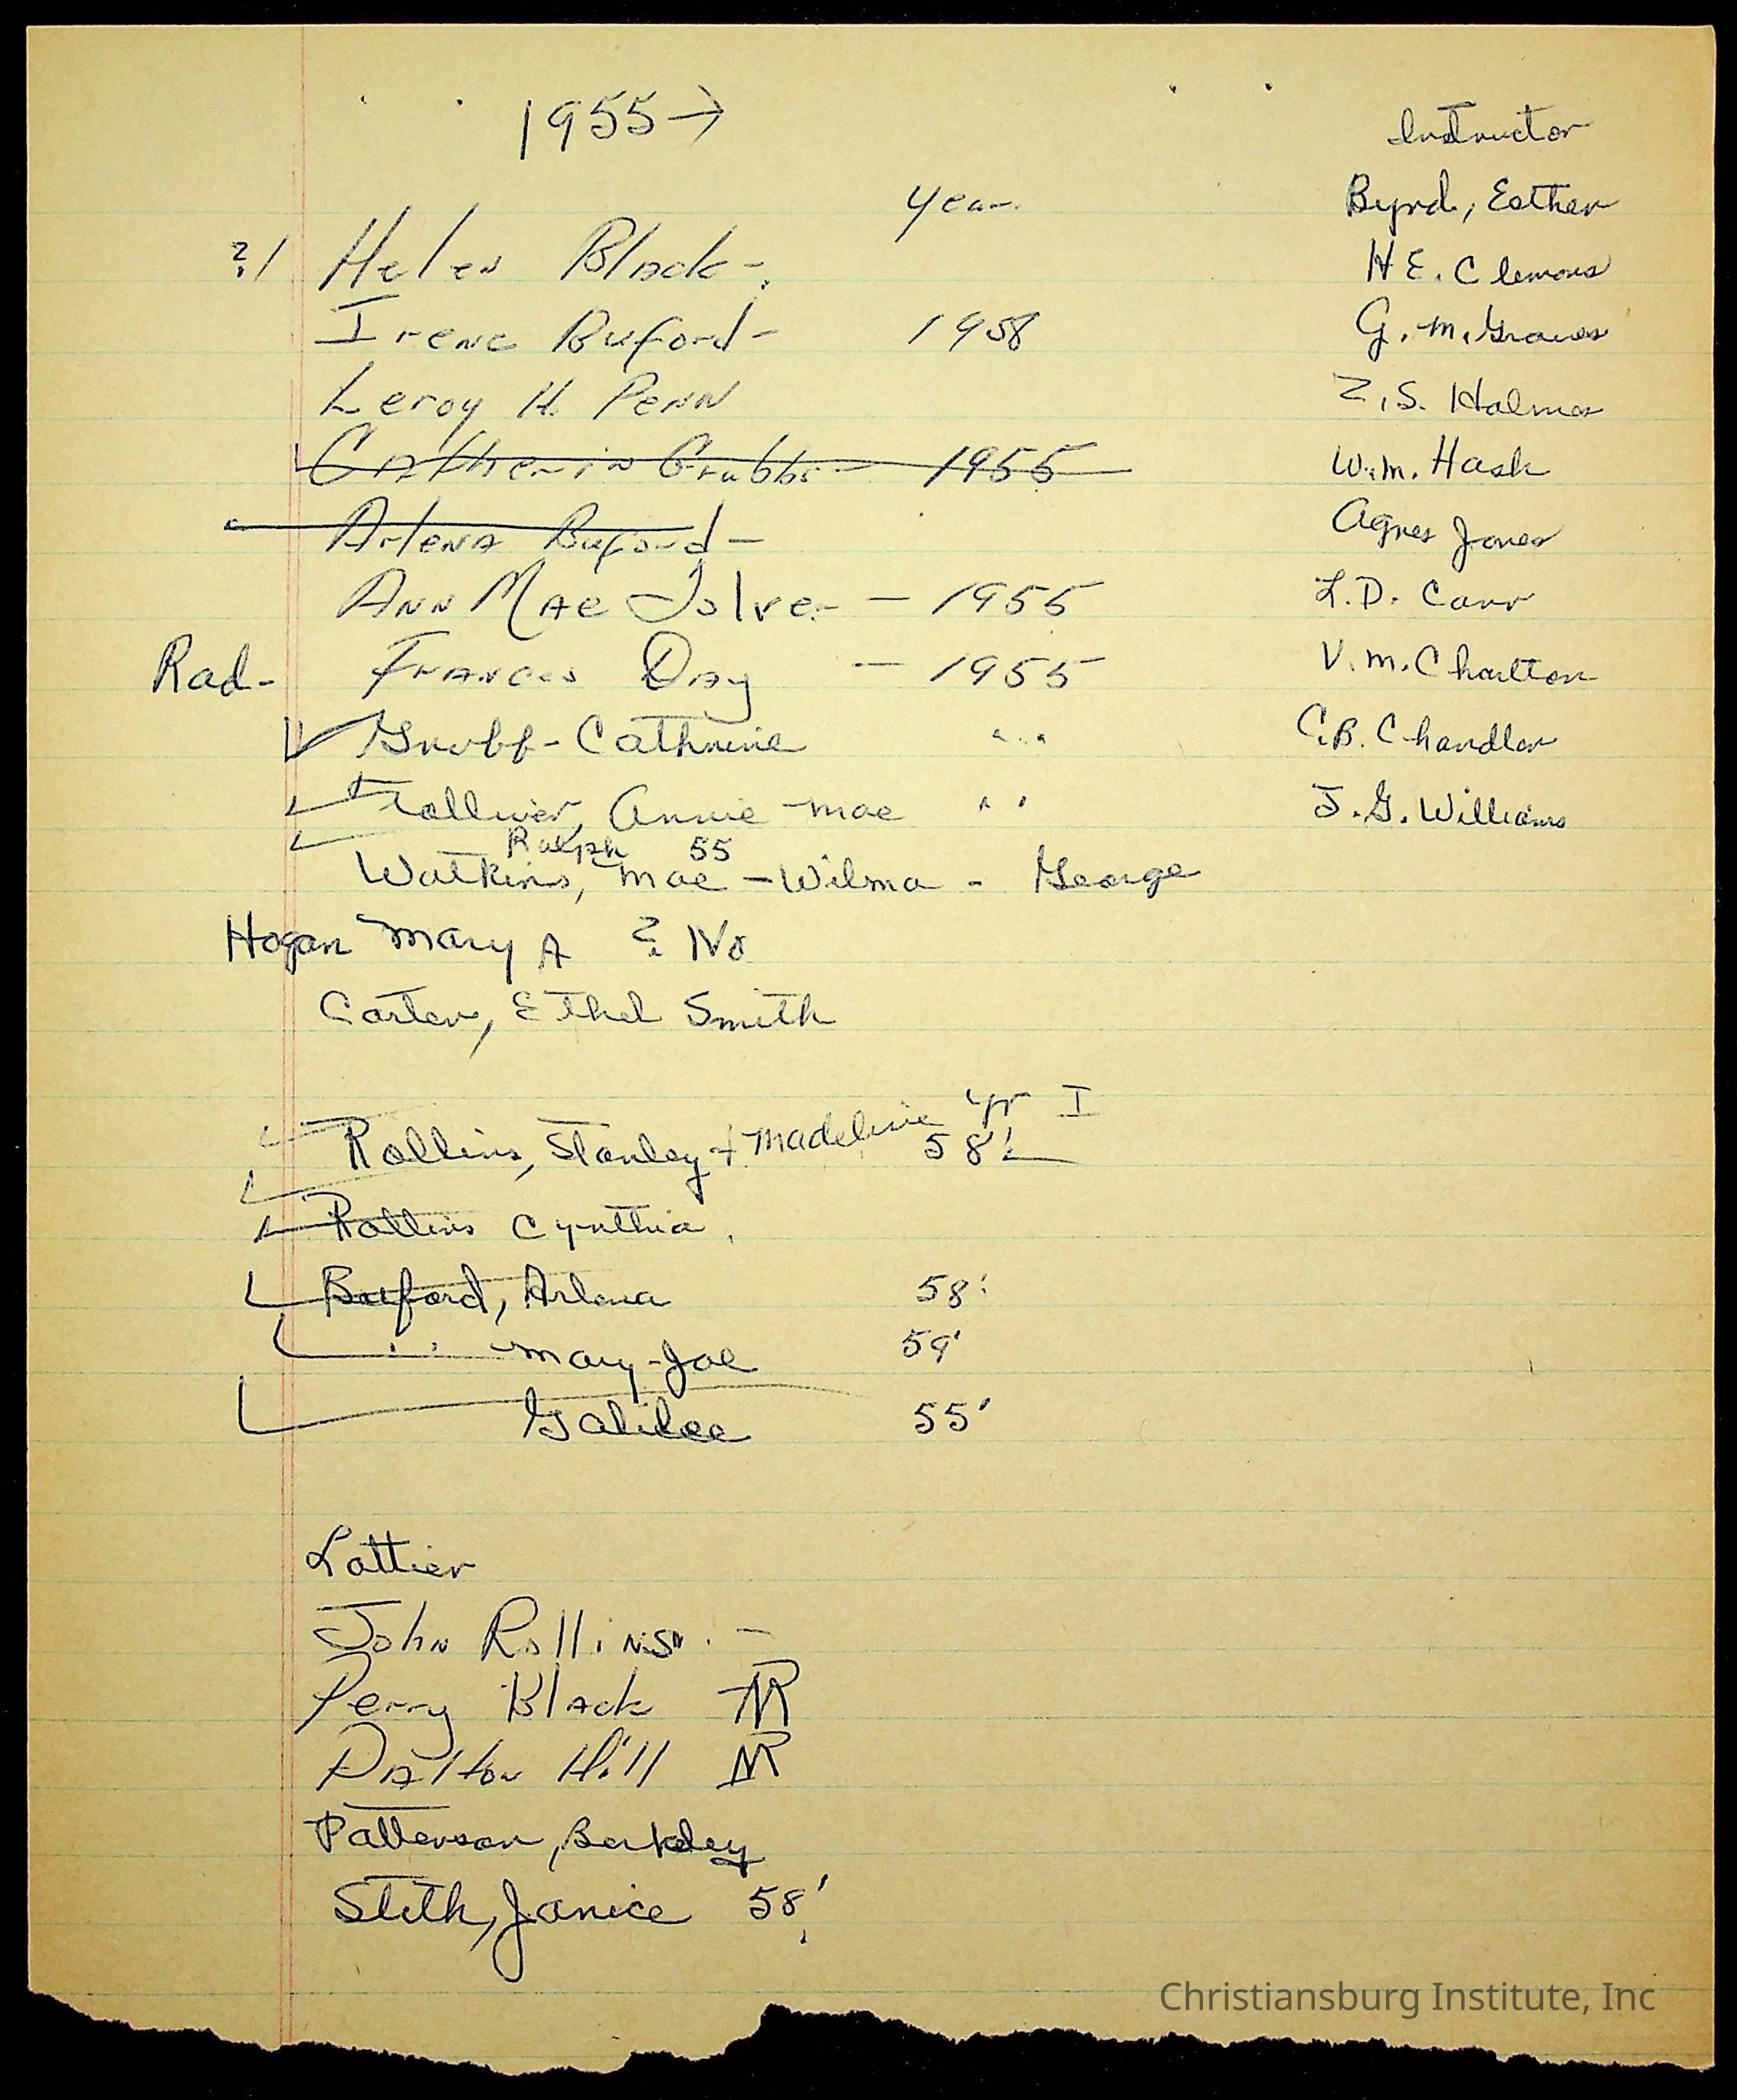 1955→
Year
?/ Helen Black-
Irene Buford- 1958
Leroy H. Penn
Catherin Grubbs - 1955
Arlena Buford-
Ann Mae Tolver - 1955
Rad- Frances Day - 1955
Grubb-Cathrine " "
Tolliver, Annie-Mae " "
Ralph 55
Watkins, Mae-Wilma - George
Hogan Mary A ? No
Carter, Ethel Smith
Yr I
Rollins, Stanley + Madeline 58'
Rollins Cynthia
Buford, Arlena 58'
" Mary-Joe 59'
Galilee 55'
Lattier
John Rollins. -
Perry Black NR
Dalton Hill NR
Patterson, Berkley
Stith, Janice 58'
Instructor
Byrd, Esther
H E. Clemons
G. M. Graves
Z. S. Holmes
W. M. Hash
Agnes Jones
L. D. Carr
V. M. Charlton
C. B. Chandler
J. G. Williams
Christiansburg Institute, Inc